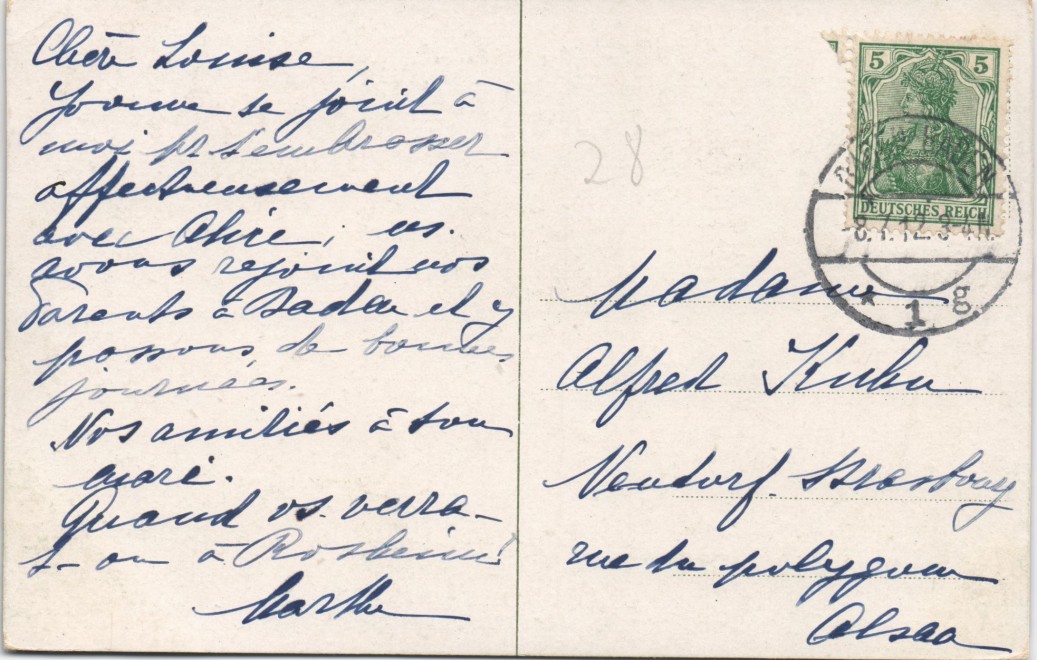 Chère Louise,
Yvonne se joint à
moi pr t'embrasser
affectueusement
avec Alice, ns.
avons rejoint nos
parents à Baden et y
passons de bonnes
journées.
Nos amitiés à ton
mari.
Quand vs. verra-
t-on à Rosheim!
Marthe
28
5 5
DEUTSCHES REICH
BADEN
1 g
Madame
Alfred Kuhn
Neudorf Strasbourg
rue du polygone
Alsace